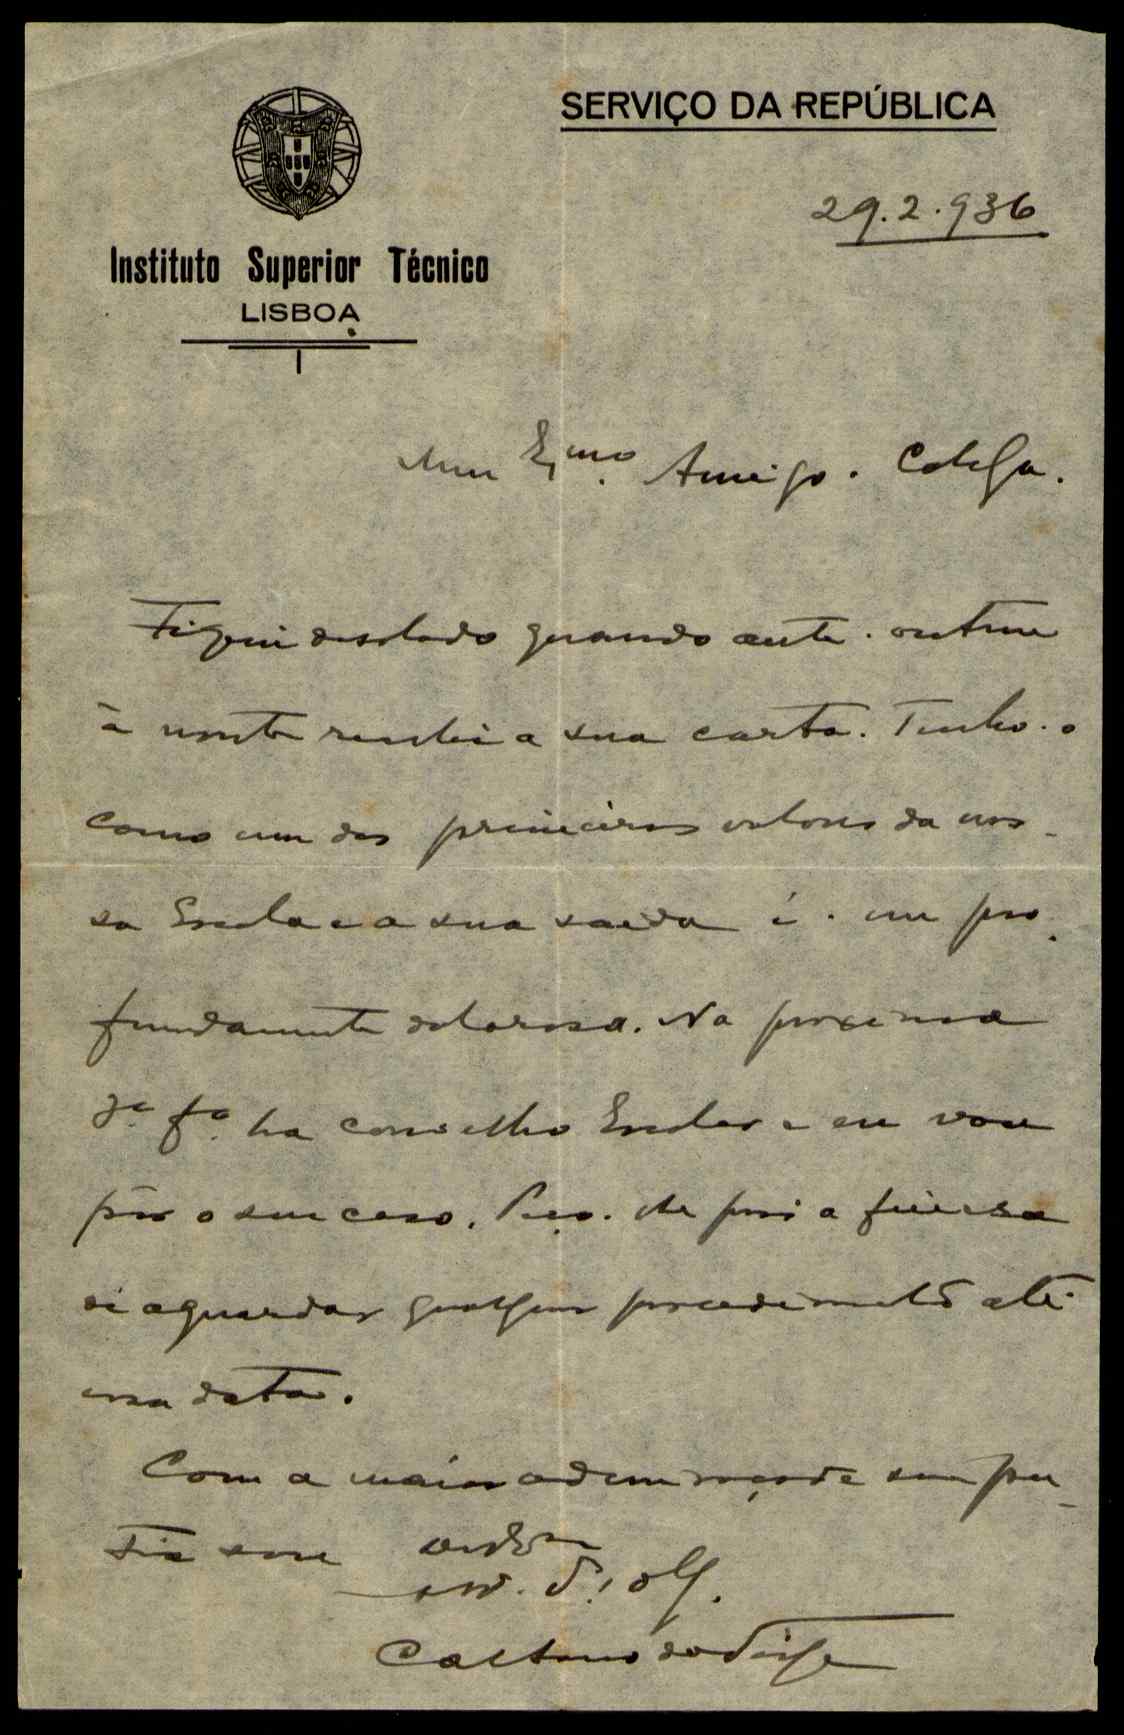 SERVIÇO DA REPÚBLICA
29.2.936
Instituto Superior Técnico
LISBOA
Meu Exmo. Amigo e Colega.
Fiquei desolado quando ante-ontem
à noute recebi a sua carta. Tenho-o
como um dos primeiros valores da nos-
sa Escola e a sua saida é-me pro-
fundamente dolorosa. Na proxima
3ª fª ha conselho Escolar e eu vou
pôr o seu caso. Peço-lhe pois a fineza
de aguardar qualquer procedimento até
essa data.
Com a maior admiração e simpa-
tia sou
Caetano